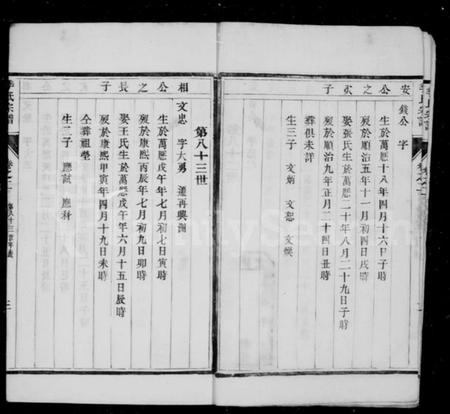 安公之次子
錢公 字
生於萬曆十八年四月十六日子時
歿於順治五年十一月初四日戌時
娶張氏生於萬曆二十年八月二十九日子時
歿於順治九年正月二十四日丑時
葬俱未詳
生三子 文炳 文起 文煥
第八十三世
相公之長子
文忠 字大勇 遷再興洲
生於萬曆戊午年七月初七日寅時
歿於康熙丙辰年七月初九日卯時
娶王氏生於萬曆戊午年六月十五日辰時
歿於康熙甲寅年四月十九日未時
仝葬祖塋
生二子 應試 應科
李氏宗譜
卷之二
第八十三世年表
三